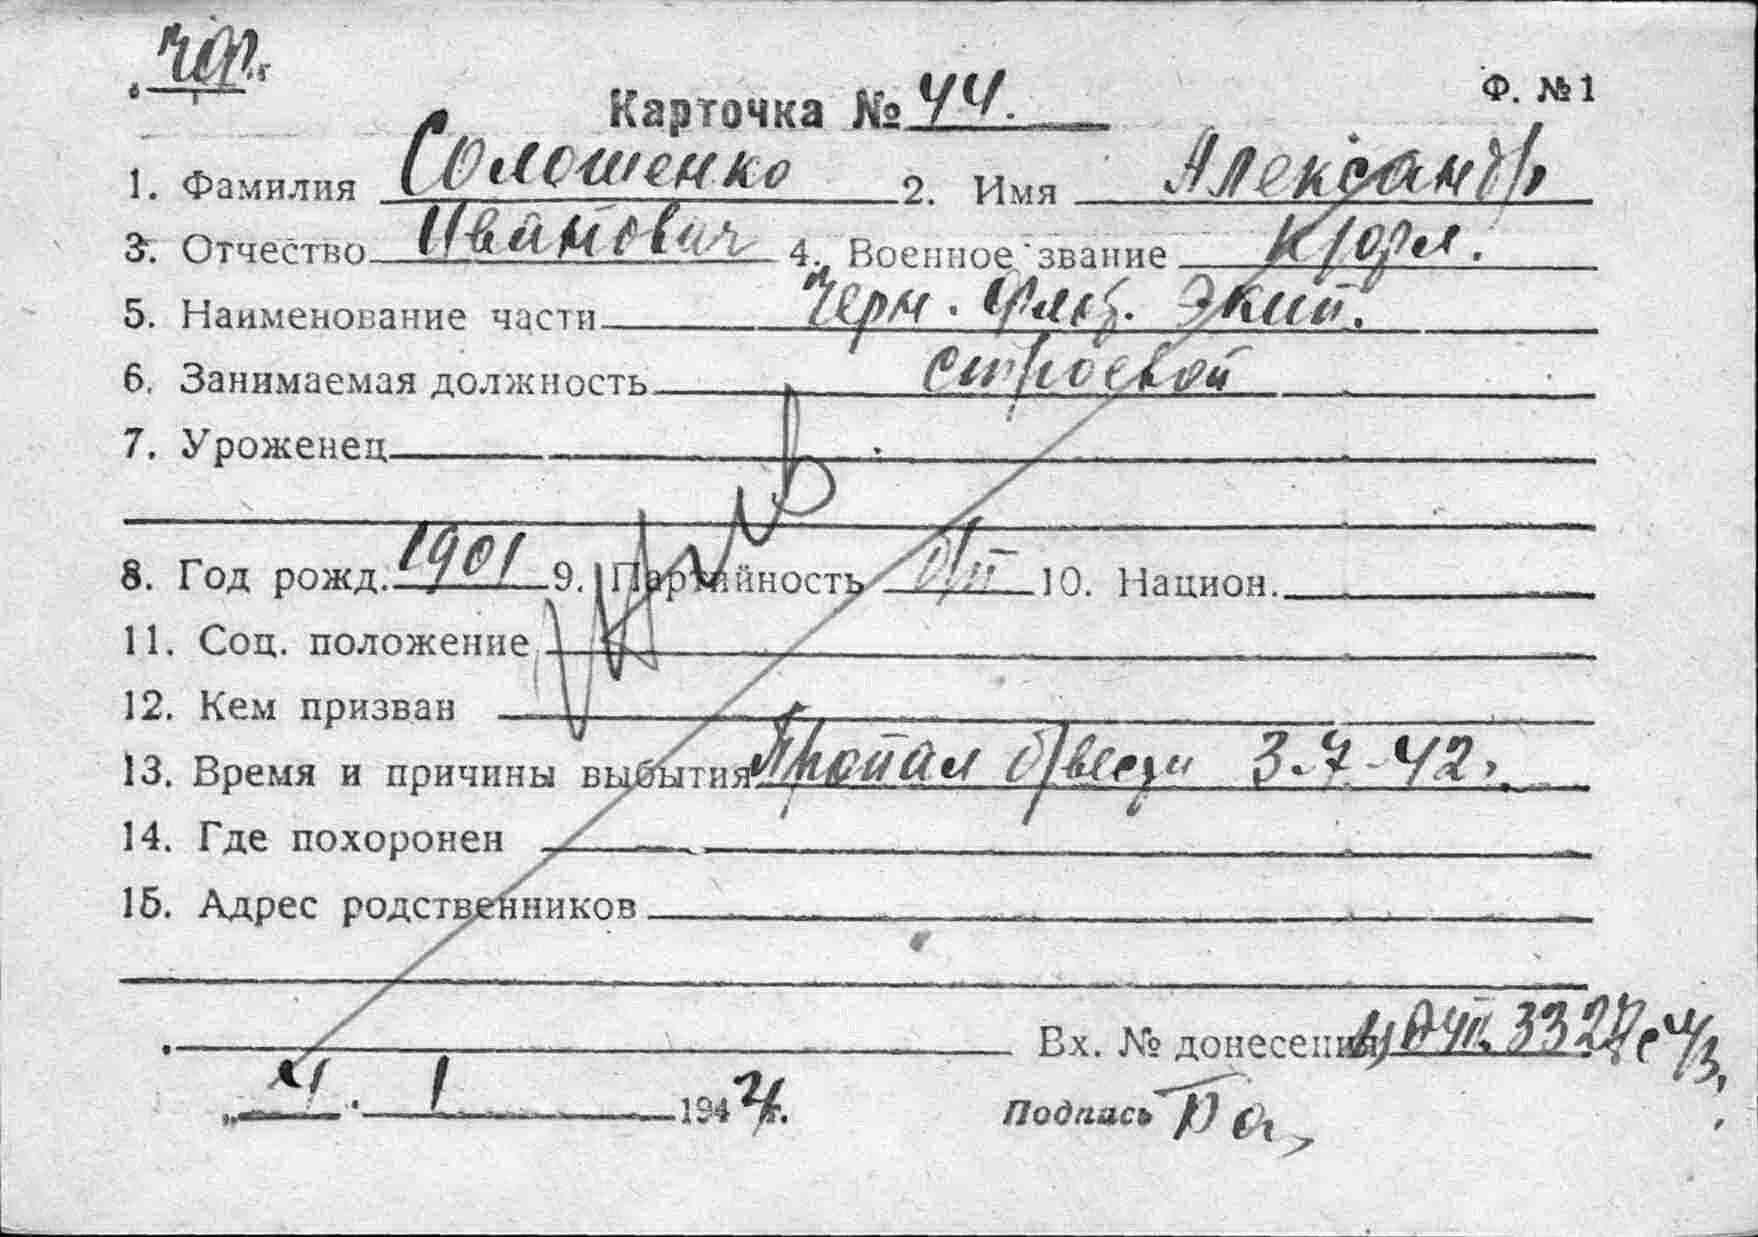 ЧФ
Карточка № 44. Ф. №1
1. Фамилия Солошенко 2. Имя Александр
3. Отчество Иванович 4. Военное звание кр
5. Наименование части Черн. Флот. Экип.
6. Занимаемая должность строевой
7. Уроженец
жив
8. Год рожд. 1901 9. Партийность б/п 10. Национ.
11. Соц. положение
12. Кем призван
13. Время и причины выбытия Пропал б/вести 3-7-42г.
14. Где похоронен
15. Адрес родственников
Вх. № донесения 3327с
„4. 1 1944г. Подпись